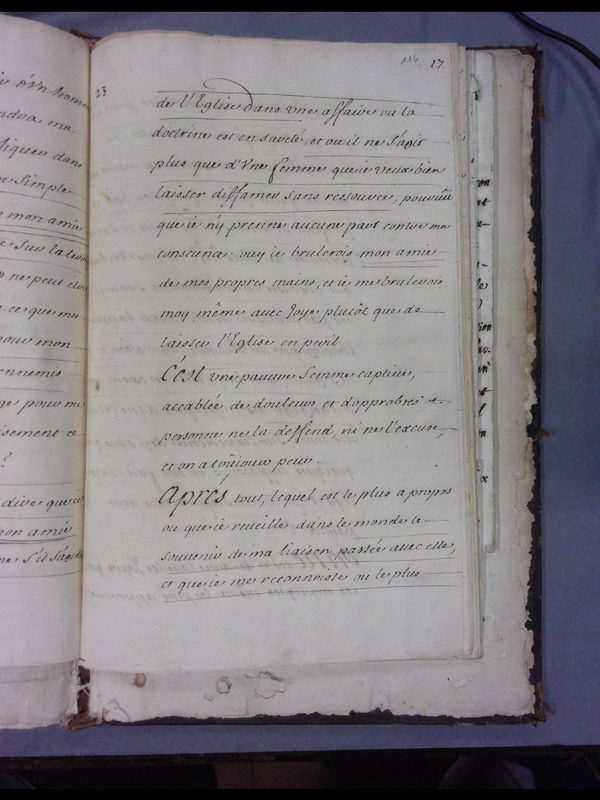 114 17.
23
de l'Eglise dans vne affaire ou la
doctrine est en sureté, et ou il ne s'agit
plus que d'Vne femme que ie veux bien
laisser diffamer sans ressource, pourvû
que ie n'y prenne aucune part contre ma
conscience ouy ie brulerois mon amie
de mes propres mains, et ie me brulerois
moy même avec Joye plutôt que de
laisser l'Eglise en peril
C'est vne pauvre femme captive,
accablée de douleurs et d'opprobres
personne ne la deffend, ni ne l'excuse,
et on a toûjours peur.
Apres tout, lequel est le plus a propos
ou que ie reveille dans le monde le
souvenir de ma liaison passée avec elle,
et que ie me reconnoisse ou le plus
mon amie
ne peut
ce que
pour mon
ennemis
pour me
?
dire que ie
mon amie